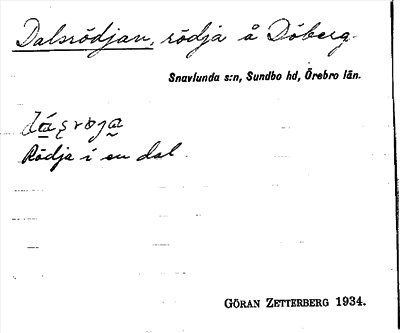 Dalsrödjan, rödja å Döberg.
Snavlunda s:n, Sundbo hd, Örebro län.
Rödja i en dal.
GÖRAN ZETTERBERG 1934.